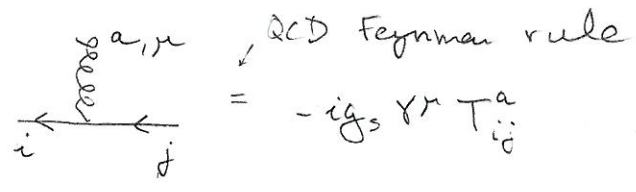 a, μ
QCD Feynman rule
= - i g_s γ^μ T^a_{ij}
i j